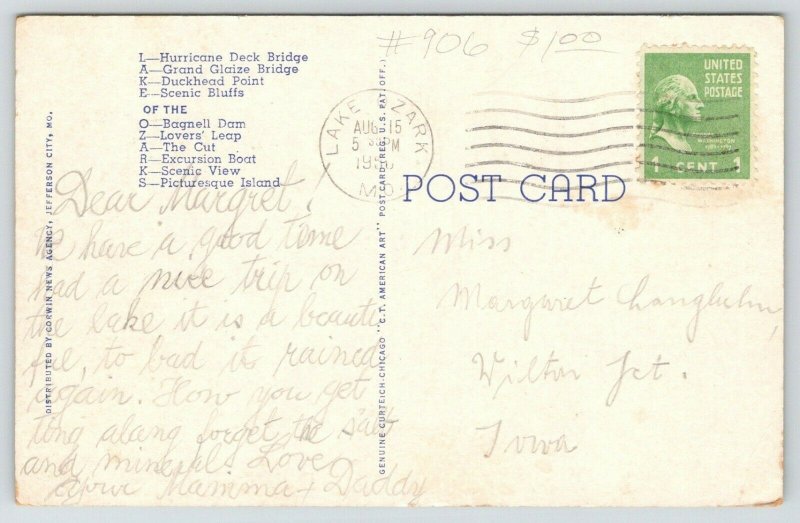 #906 $1.00
L—Hurricane Deck Bridge
A—Grand Glaize Bridge
K—Duckhead Point
E—Scenic Bluffs
OF THE
O—Bagnell Dam
Z—Lovers' Leap
A—The Cut
R—Excursion Boat
K—Scenic View
S—Picturesque Island
DISTRIBUTED BY CORWIN NEWS AGENCY, JEFFERSON CITY, MO.
GENUINE CURTEICH-CHICAGO "C.T. AMERICAN ART" POST CARD (REG. U.S. PAT. OFF.)
LAKE OZARK
AUG 15
5 PM
MO.
UNITED
STATES
POSTAGE
WASHINGTON
1 CENT 1
POST CARD
Dear Margret,
We have a good time
had a nice trip on
the lake it is a beauti
ful, to bad it rained
again. How you get
tong along forget the salt
and minerals Love
Mamma + Daddy
Miss
Margaret
Wilton Jct.
Iowa